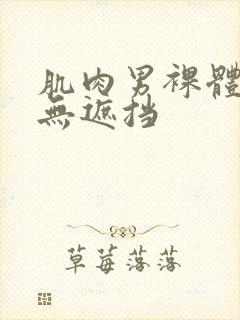 肌肉男裸體
無遮挡
草莓落落